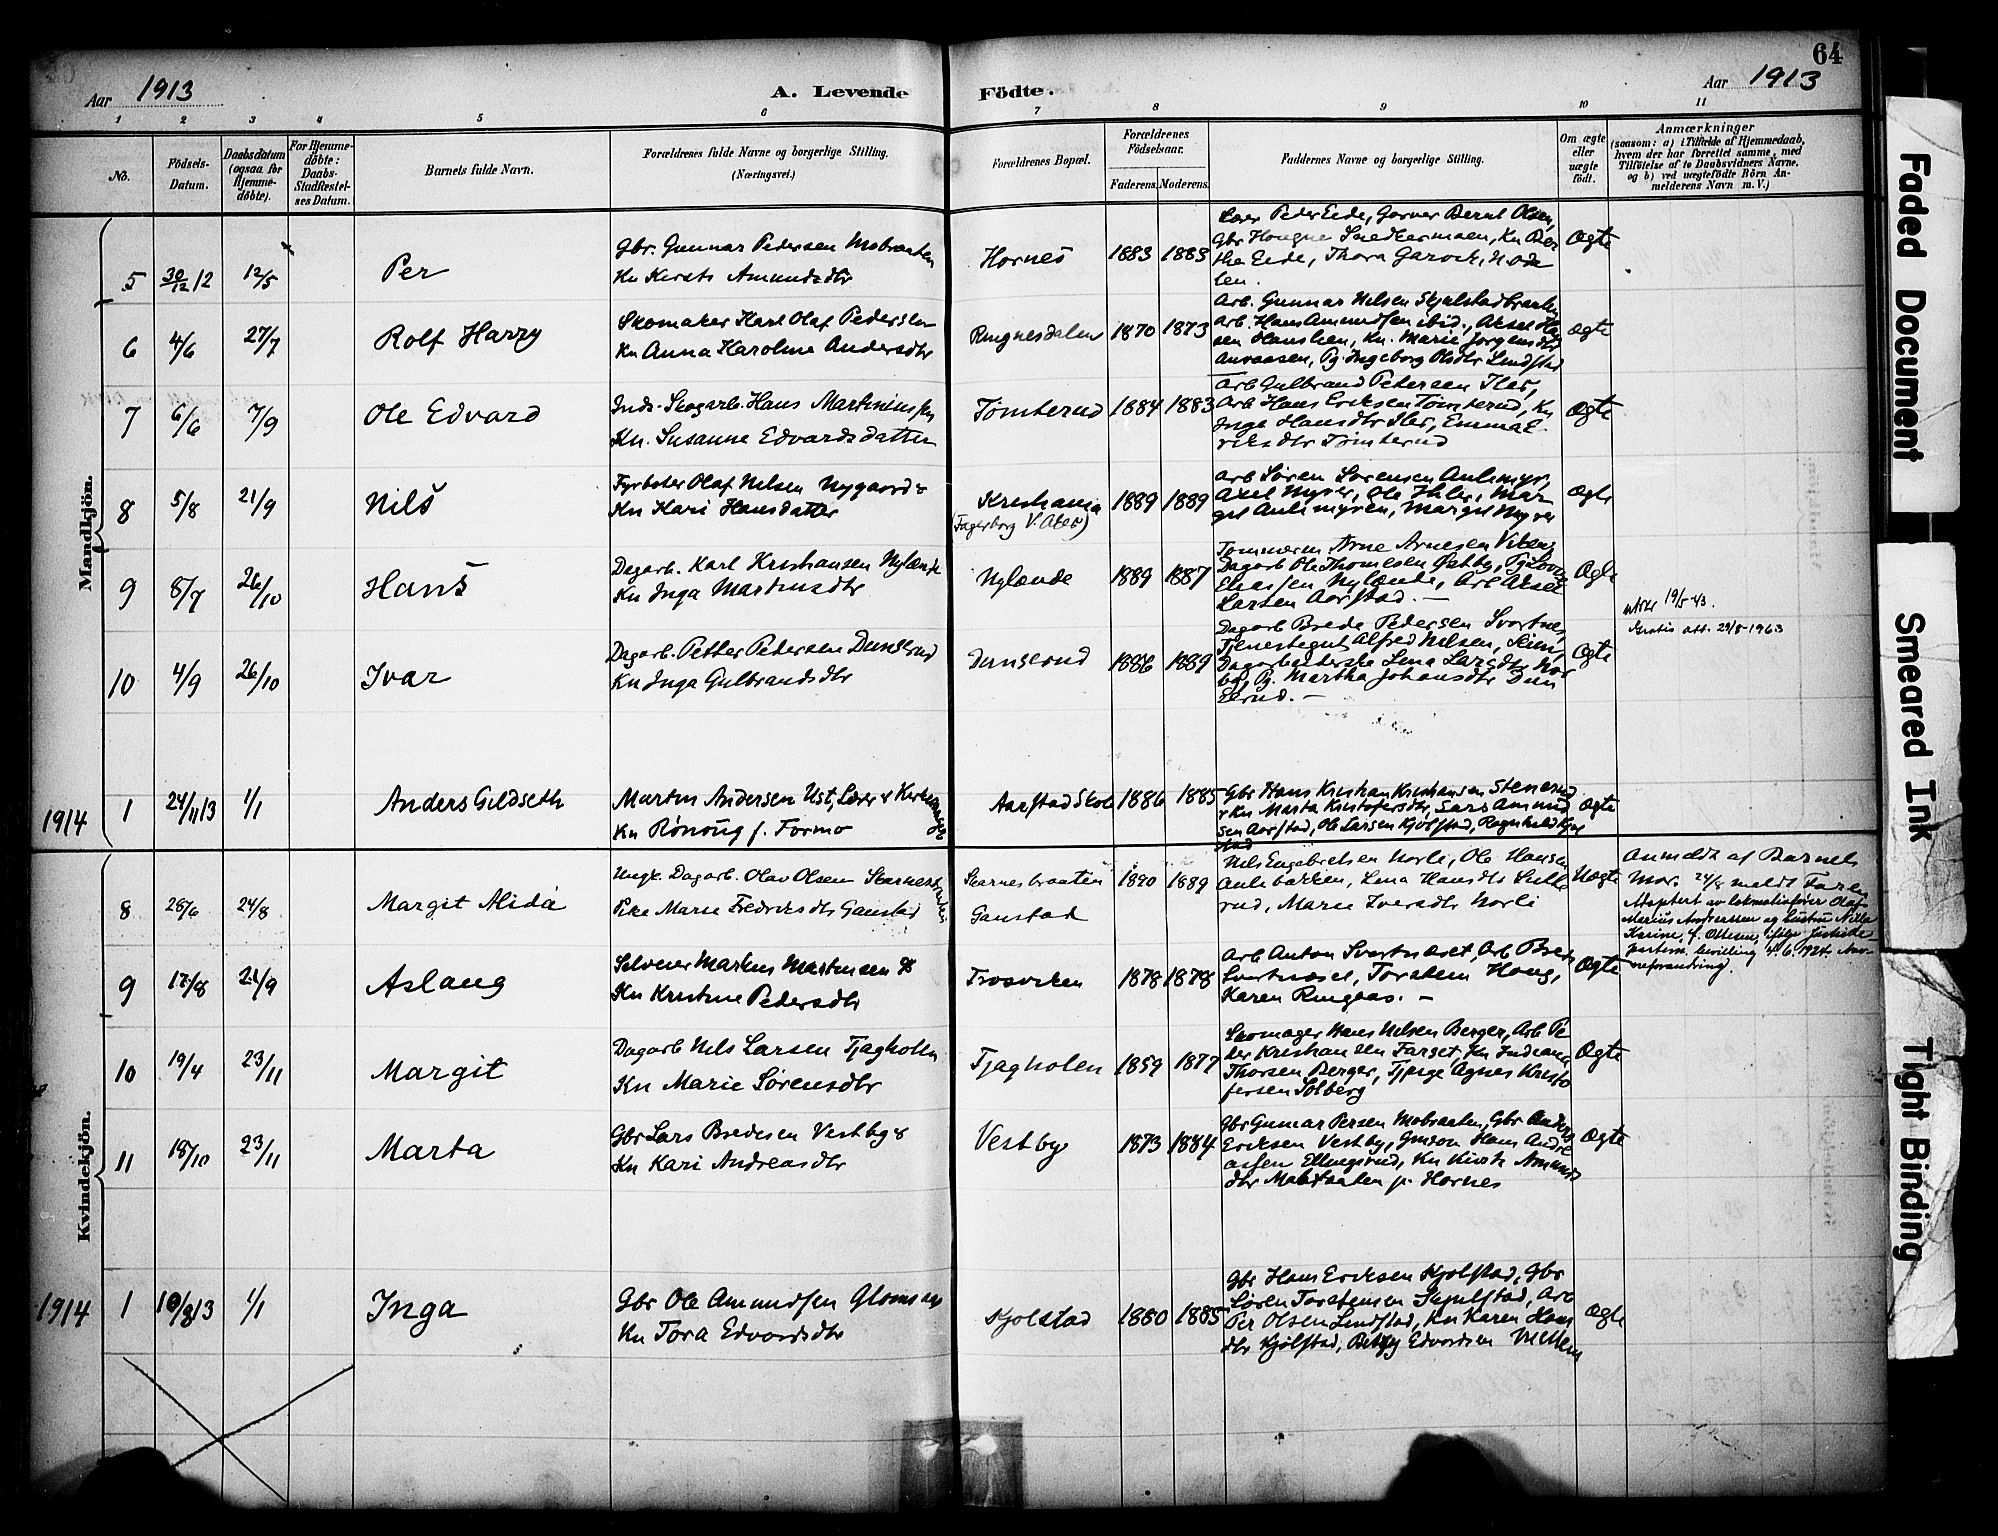 64
Aar 1913
A. Levende Födte.
Aar 1913
1 2 3 4 5 6 7 8 9 10 11
No.
Födsels-Datum.
Daabsdatum (ogsaa for Hjemme-döbte).
For Hjemme-döbte: Daabs-Stadfæstelses Datum.
Barnets fulde Navn.
Forældrenes fulde Navne og borgerlige Stilling.
(Næringsvei.)
Forældrenes Bopæl.
Forældrenes Födselsaar.
Faderens. Moderens.
Faddernes Navne og borgerlige Stilling.
Om ægte eller uægte födt.
Anmærkninger
(saasom: a) i Tilfælde af Hjemmedaab,
hvem der har forrettet samme, med
Tilföielse af to Daabsvidners Navne,
og b) ved uægtefödte Börn An-
melderens Navn m. V.)
Mandkjön.
5 30/12 12 12/5 Per
Gbr. Gunnar Pedersen Mobraaten
Kn Kersti Amundsdtr
Hornes 1883 1883
Lærer Peder Eide, Garver Bernt Olsen,
Gbr Haugne Snedkermoen, Kn Ber
the Eide, Thora
Ægte
6 4/6 27/7 Rolf Harry
Skomaker Karl Olaf Pedersen
Kn Anna Karoline Andersdtr
Ringnesdalen 1870 1873
Arb. Gunnar Nilsen Skjelstadbraaten
Arb. Hans Amundsen ibid., Aksel Han
sen Hanslien, Kn. Marie Jørgensdtr
Pg. Ingeborg Olsdtr Lindstad
Ægte
7 6/6 7/9 Ole Edvard
Inds. Skogarb. Hans Martiniussen
Kn. Susanne Edvardsdatter
Tømterud 1884 1883
Arb Gulbrand Pedersen Iler,
Arb Hans Eriksen Tømterud, Kn
Inge Hansdtr Iler, Emma E-
riksdtr Tømterud
Ægte
8 5/8 21/9 Nils
Fyrbøter Olaf Nilsen Nygaard &
Kn Kari Hansdatter
Kristiania
(Fagerborg V. Aker)
1889 1889
Arb Søren Sørensen Aulimyr,
Axel Myrer, Ole Ihler, Mar
git Aulimyren, Margit Myrer
Ægte
9 8/7 26/10 Hans
Dagarb. Karl Kristiansen Nylænde
Kn Inga Martinsdtr
Nylænde 1889 1887
Tømmerm Arne Arnesen Viberg
Dagarb Ole Thomesen Østby, Pg Lovise
Eliassen Nylænde, Arb Aksel
Larsen Aarstad. —
Ægte
10 4/9 26/10 Ivar
Dagarb. Petter Pedersen Dunserud
Kn Inga Gulbrandsdtr
Dunserud 1886 1889
Dagarb Brede Pedersen Svartnes,
Tjenestegut Alfred Nilsen, Skim,
Dagarbeiderske Lena Larsdtr Nor
by, Pg. Martha Johansdtr Dun
serud. —
Ægte
attest 19/5-43.
Gratis att. 29/8-1963
1914 1 24/11 13 1/1 Anders Gildseth
Martin Andersen Ust, Lærer & Kirkesanger
Kn Rønnug f. Formo
Aarstad Skole 1886 1885
Gbr Hans Kristian Kristiansen Stenerud
& Kn Marta Kristofersdtr, Lars Amund
sen Aarstad, Ole Larsen Kjølstad, Ragnhild Kjøl
stad
Ægte
Kvindekjön.
8 28/6 24/8 Margit Alida
Ungk. Dagarb. Olav Olsen Skarnesbraaten
Pike Marie Fredriksdtr Ganstad
Skarnesbraaten
Ganstad
1890 1889
Nils Engebretsen Norli, Ole Hansen
Aulibakken, Lena Hansdtr Lille
rud, Marie Iversdtr Norli
Uægte
Anmeldt af Barnets
Mor. 24/8 meldt Faren
Adoptert av lokomotivfører Olaf
Marius Andersen og hustru Nilla
Karine, f. Ottesen, ifølge Justitde-
partem. bevilling 4.6.1924. Nav-
neforandring.
9 17/8 21/9 Aslaug
Selveier Markus Martinsen &
Kn Kristine Pedersdtr
Trosviken 1878 1878
Arb Anton Svartnæset, Arb Brede
Svartnæset, Torsten Haug,
Karen Ringaas. —
Ægte
10 19/4 23/11 Margit
Dagarb Nils Larsen Tjagholen
Kn Marie Sørensdtr
Tjagholen 1859 1877
Skomager Hans Nilsen Berger, Arb Pe
der Kristiansen Farset, Kn Indiana
Thorsen Berger, Tjpige Agnes Kristo
fersen Solberg
Ægte
11 18/10 23/11 Marta
Gbr Lars Bredesen Vestby &
Kn Kari Andreasdtr
Vestby 1873 1884
Gbr Gunnar Persen Mobraaten, Gbr Anders
Eriksen Vestby, Gmson Hans Andre
assen Ellingsrud, Kn Kirsti Amunds
dtr Mobraaten p. Hornes
Ægte
1914 1 10/8 13 1/1 Inga
Gbr Ole Amundsen Glomsaas
Kn Tora Edvardsdtr
Kjølstad 1880 1885
Gbr Hans Eriksen Kjølstad, Gbr
Søren Torstensen Skjulstad, Arb
Per Olsen Lindstad, Kn Karen Hans
dtr Kjølstad, Betzy Edvardsen
Ægte
Faded Document
Smeared Ink
Tight Binding